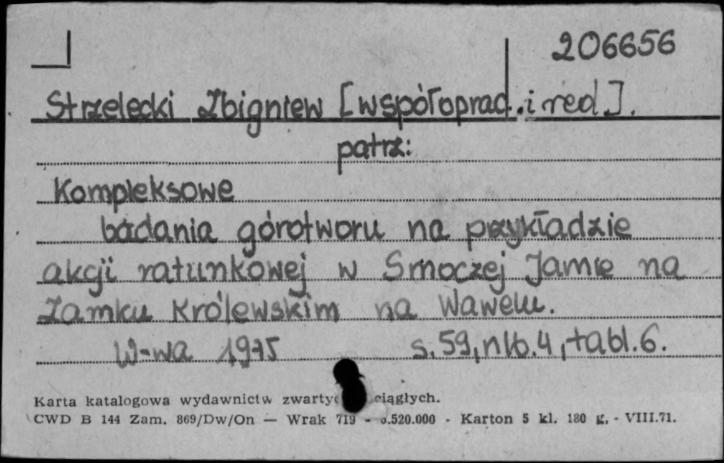 206656
Strzelecki Zbigniew [współoprac. i red].
patrz:
Kompleksowe
badania górotworu na przykładzie
akcji ratunkowej w Smoczej Jamie na
Zamku Królewskim na Wawelu.
W-wa 1975 s. 59, nlb. 4, tabl. 6.
Karta katalogowa wydawnictw ciągłych.
CWD B 144 Zam. 869/Dw/On — Wrak 719 - .520.000 - Karton 5 kl. 180 g. - VIII.71.